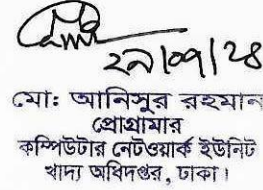 ২৯/০৭/২৪
মো: আনিসুর রহমান
প্রোগ্রামার
কম্পিউটার নেটওয়ার্ক ইউনিট
খাদ্য অধিদপ্তর, ঢাকা।